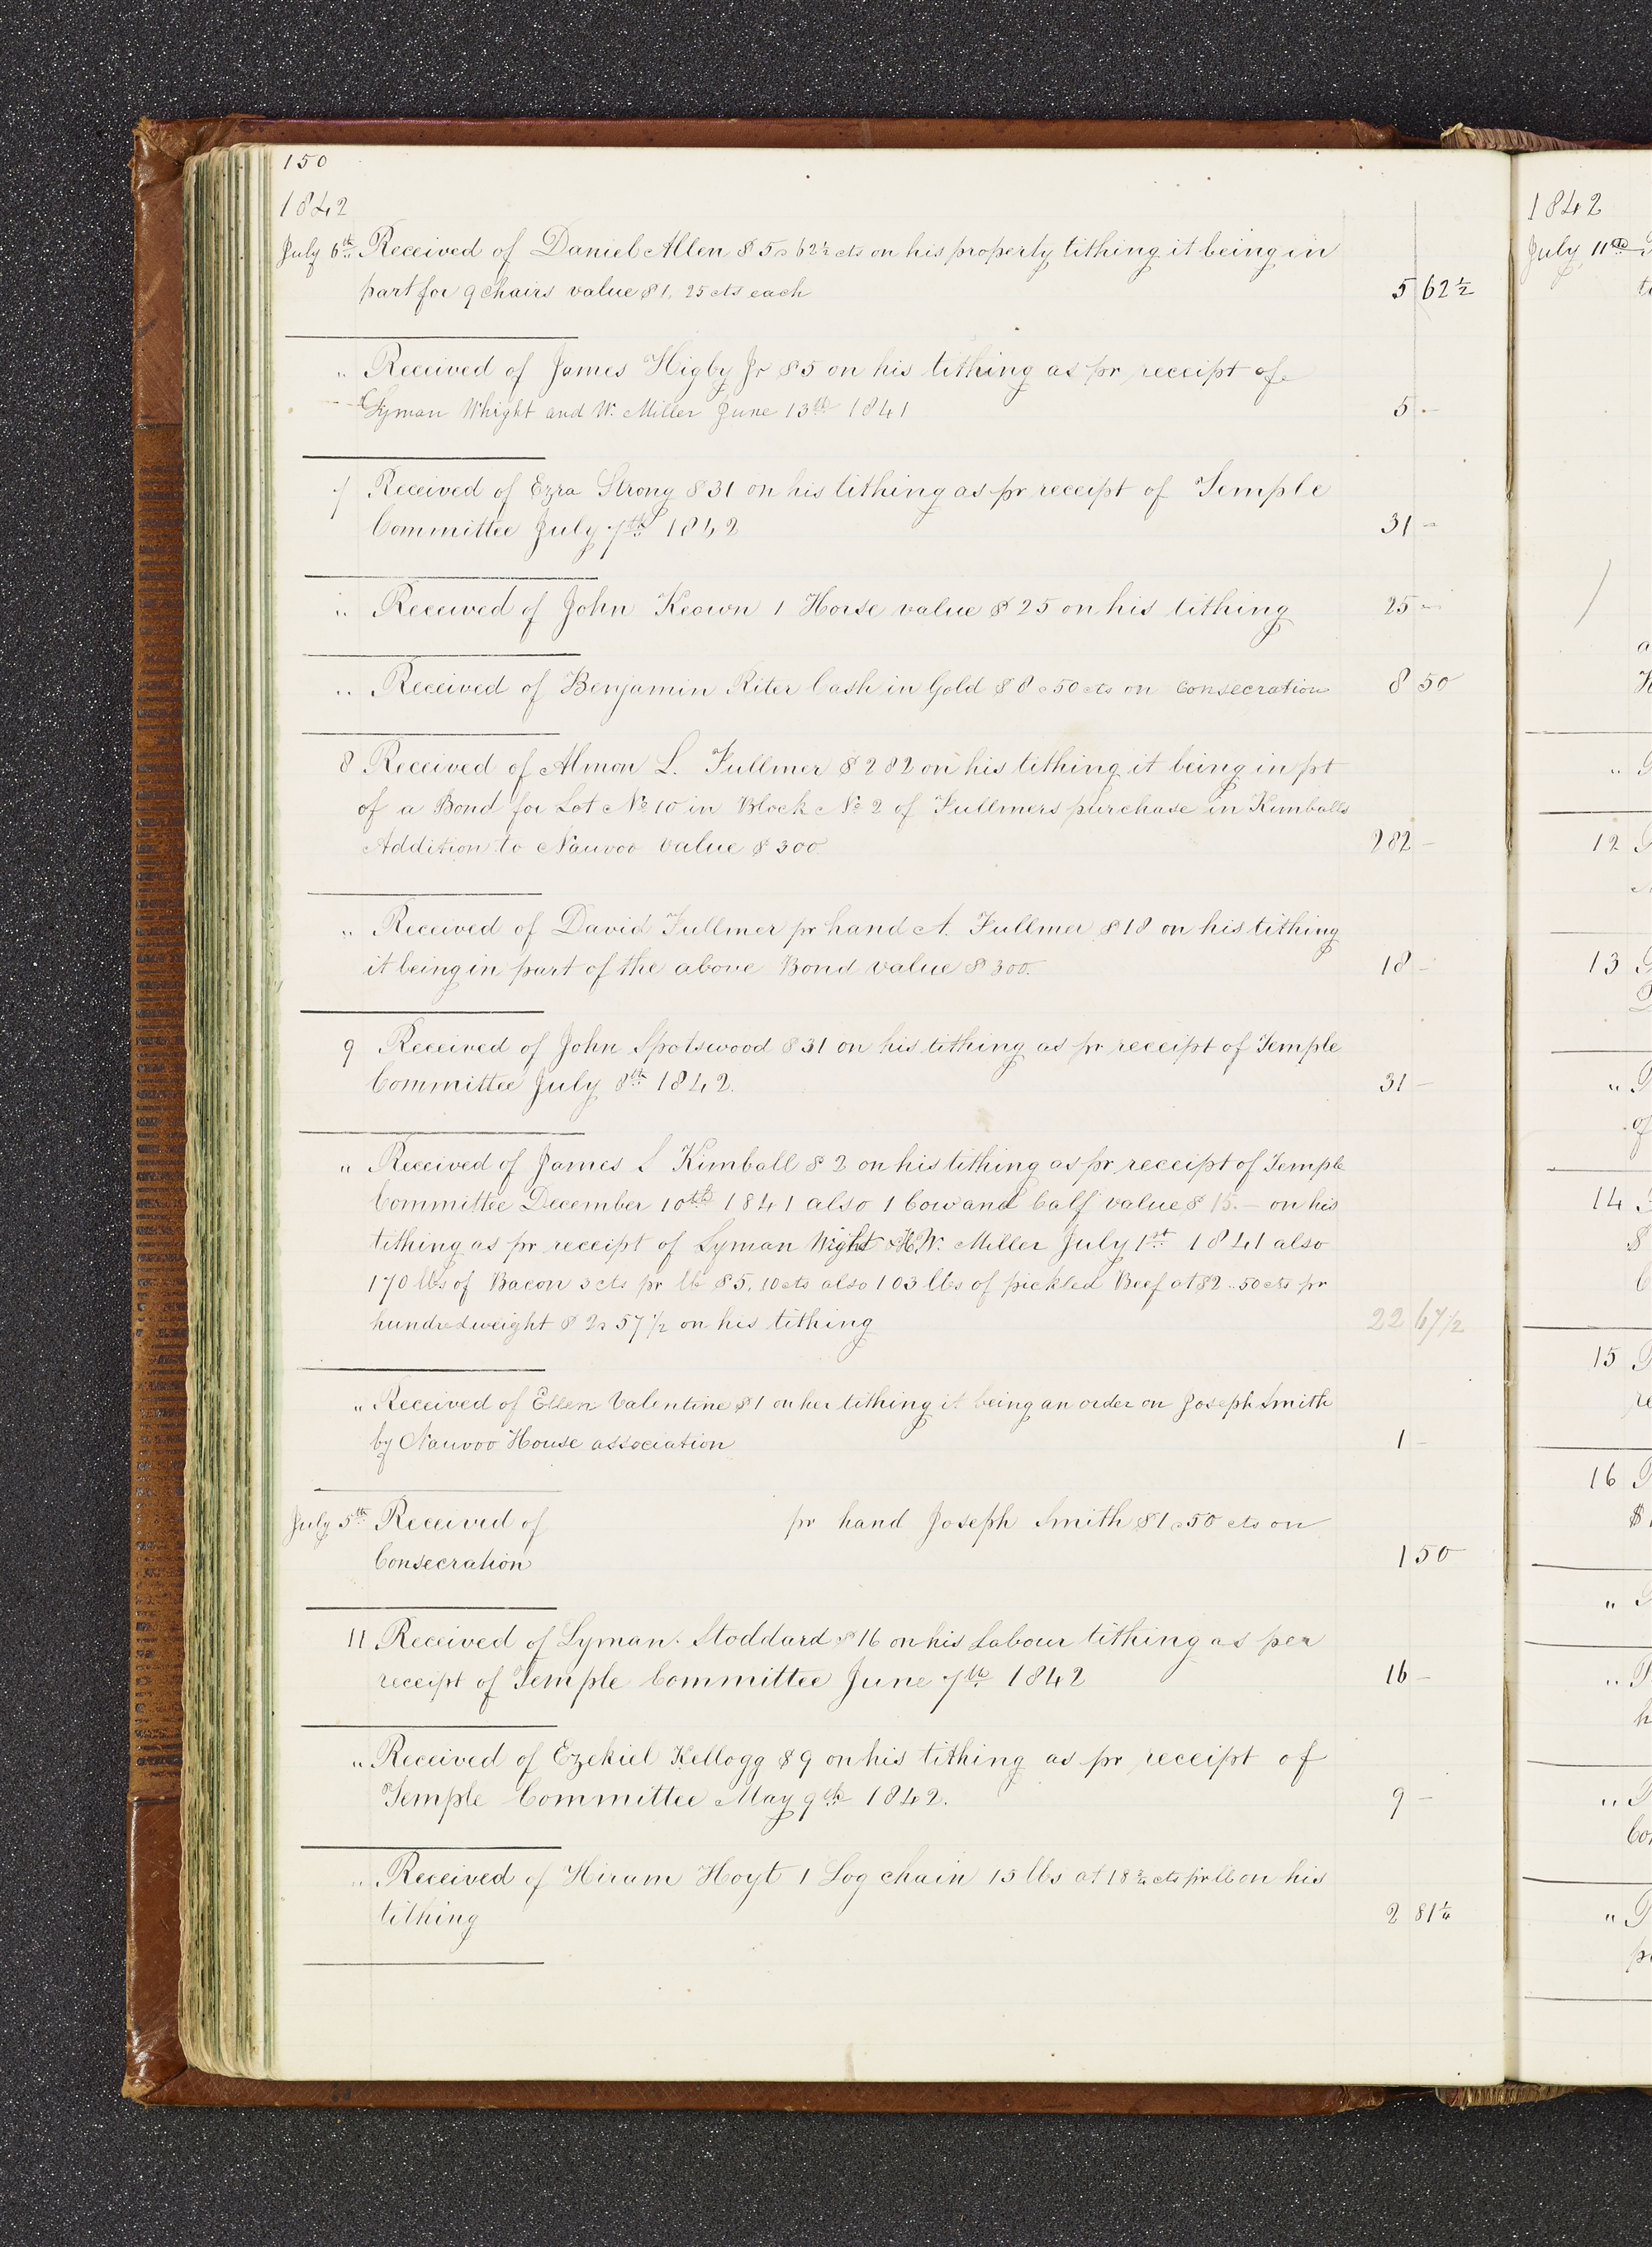 150
1842
July 6th Received of Daniel Allen $5 62½ cts on his property tithing it being in
part for 9 chairs value $1, 25 cts each 5 62½
" Received of James Higby Jr $5 on his tithing as pr receipt of
Lyman Whight and W. Miller June 13th 1841 5 -
7 Received of Ezra Strong $31 on his tithing as pr receipt of Temple
Committee July 7th 1842 31 -
" Received of John Keown 1 Horse value $25 on his tithing 25 -
" Received of Benjamin Riter Cash in Gold $8 50 cts on consecration 8 50
8 Received of Almon L. Fullmer $282 on his tithing it being in pt
of a Bond for Lot No 10 in Block No 2 of Fullmers purchase in Kimballs
Addition to Nauvoo value $300 282 -
" Received of David Fullmer pr hand A. Fullmer $18 on his tithing
it being in part of the above Bond value $300. 18 -
9 Received of John Spotswood $31 on his tithing as pr receipt of Temple
Committee July 8th 1842. 31 -
" Received of James L Kimball $2 on his tithing as pr receipt of Temple
Committee December 10th 1841 also 1 Cow and Calf value $15.- on his
tithing as pr receipt of Lyman Wight & H.W. Miller July 1st 1841 also
170 lbs of Bacon 3 cts pr lb $5, 10 cts also 103 lbs of pickled Beef at $2..50 cts pr
hundredweight $2 57½ on his tithing 22 67½
" Received of Ellen Valentine $1 on her tithing it being an order on Joseph Smith
by Nauvoo House association 1 -
July 5th Received of pr hand Joseph Smith $1 50 cts on
Consecration 1 50
11 Received of Lyman. Stoddard $16 on his Labour tithing as per
receipt of Temple Committee June 7th 1842 16 -
" Received of Ezekiel Kellogg $9 on his tithing as pr receipt of
Temple Committee May 9th 1842. 9 -
" Received of Hiram Hoyt 1 Log chain 15 lbs at 18¾ cts pr lb on his
tithing 2 81¼
1842
July 11th
"
12
13
"
14
15
16
"
"
"
"